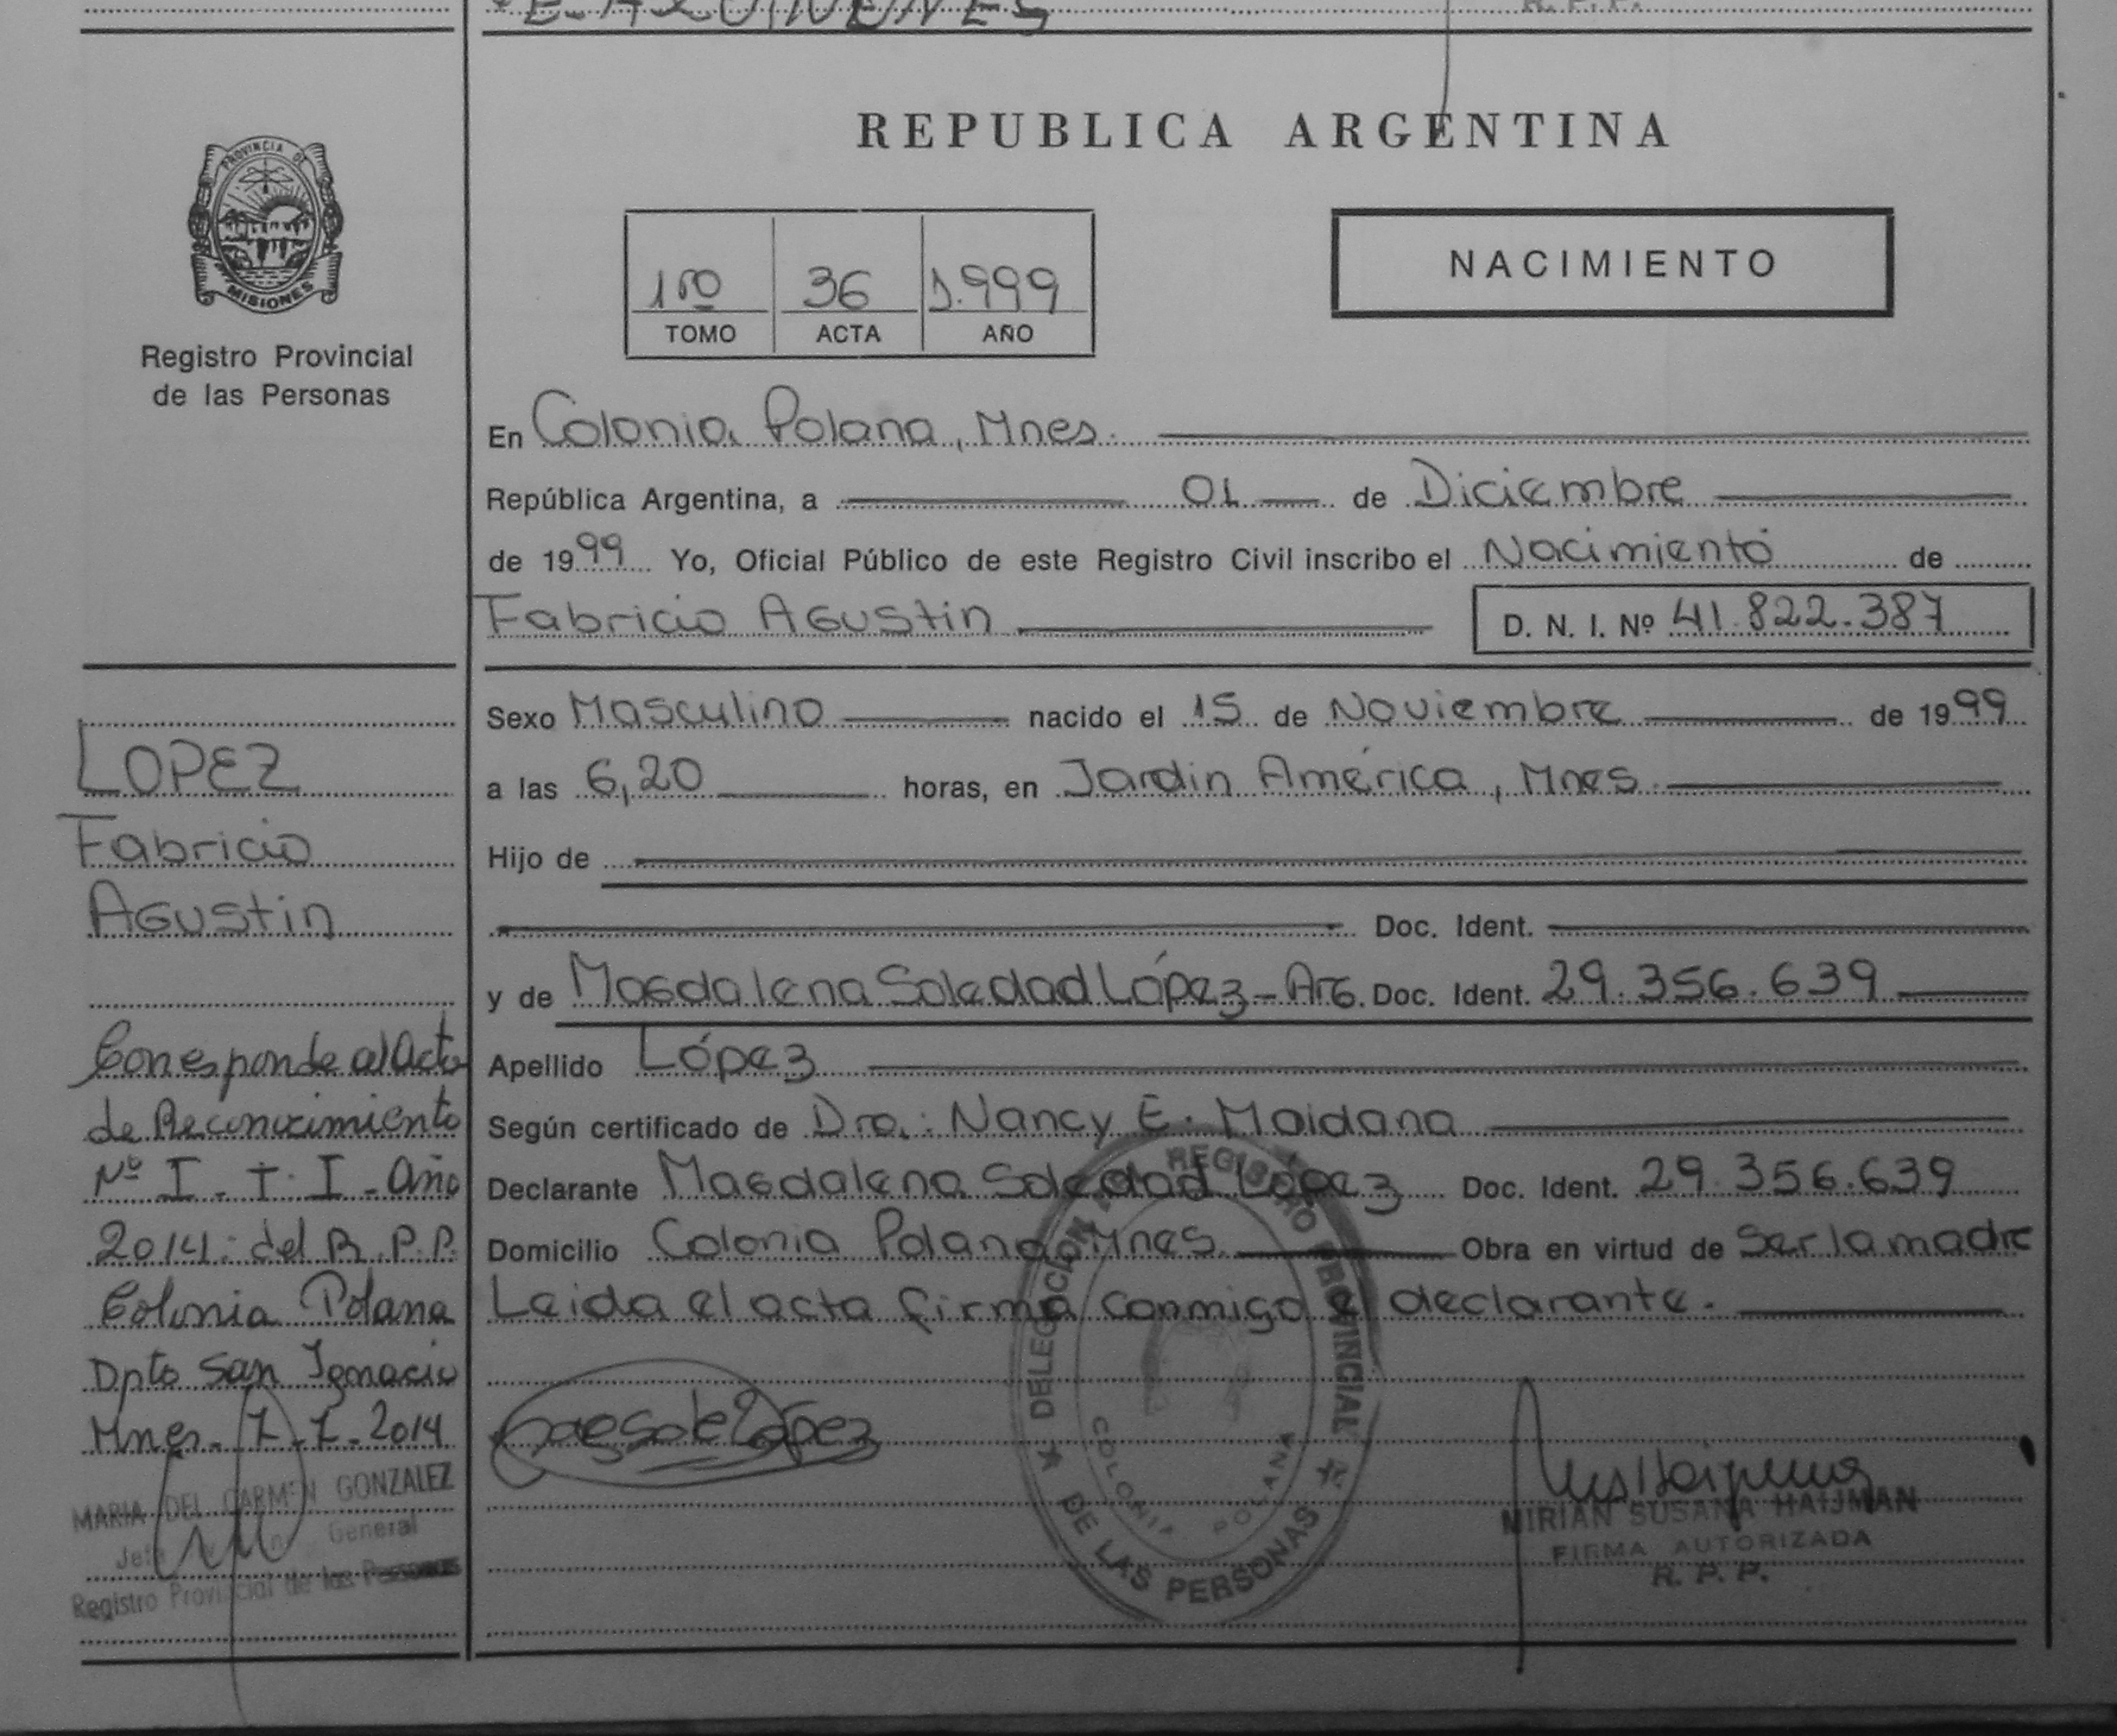 R. P. P.
PROVINCIA DE
MISIONES
Registro Provincial
de las Personas
REPUBLICA ARGENTINA
1ro 36 1.999
TOMO ACTA AÑO
NACIMIENTO
En Colonia Polana, Mnes.
República Argentina, a 01 de Diciembre
de 1999 Yo, Oficial Público de este Registro Civil inscribo el Nacimiento de
Fabricio Agustin D. N. I. Nº 41.822.387
Sexo Masculino nacido el 15 de Noviembre de 1999
a las 6,20 horas, en Jardin América, Mnes
Hijo de
Doc. Ident.
y de Magdalena Soledad López - Arg. Doc. Ident. 29.356.639
Apellido López
Según certificado de Dra.: Nancy E. Maidana
Declarante Magdalena Soledad López Doc. Ident. 29.356.639
Domicilio Colonia Polana, Mnes Obra en virtud de Ser la madre
Leida el acta firma conmigo el declarante.
LOPEZ
Fabricio
Agustin
Corresponde al Acta
de Reconocimiento
Nº I - T. I - Año
2014 del R.P.P.
Colonia Polana
Dpto San Ignacio
Mnes. 7-7-2014
MARIA DEL CARMEN GONZALEZ
General
Registro Provincial de las Personas
DELEGACION REGISTRO PROVINCIAL
DE LAS PERSONAS
COLONIA POLANA
MIRIAN SUSANA HAIJMAN
FIRMA AUTORIZADA
R. P. P.